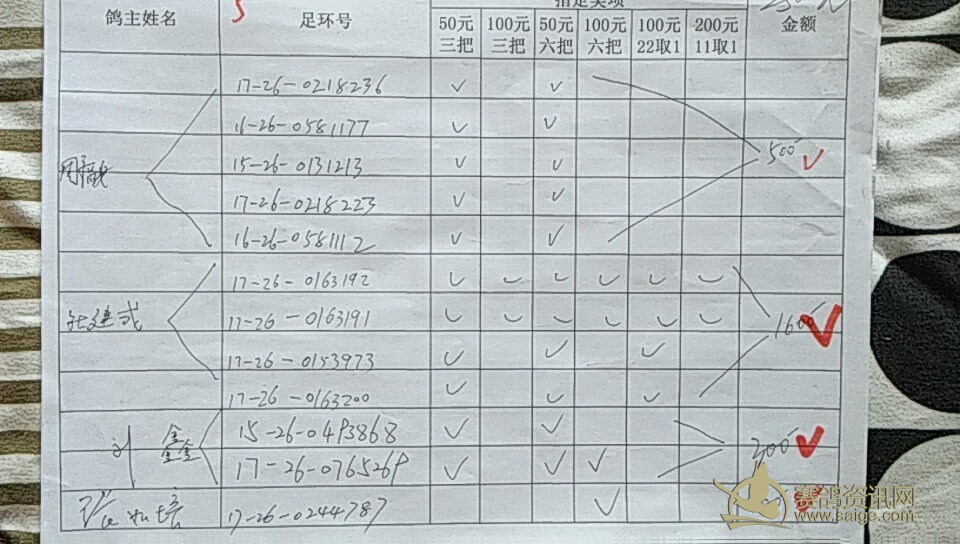 鸽主姓名 足环号 50元三把 100元三把 50元六把 100元六把 100元22取1 200元11取1 金额
17-26-0218236 ✓ ✓
16-26-0581177 ✓ ✓
15-26-0131213 ✓ ✓ 500 ✓
17-26-0218223 ✓ ✓
16-26-0581112 ✓ ✓
17-26-0163192 ✓ ✓ ✓ ✓ ✓ ✓
17-26-0163191 ✓ ✓ ✓ ✓ ✓ ✓ 1600 ✓
17-26-0153973 ✓ ✓ ✓
17-26-0163200 ✓ ✓ ✓
15-26-0493868 ✓ ✓
17-26-0765269 ✓ ✓ ✓ 200 ✓
17-26-0244787 ✓
赛鸽资讯网
www.saige.com